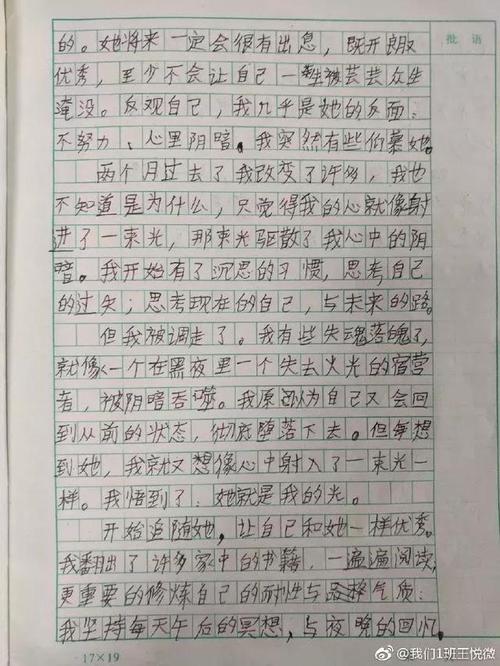 批语
的。她将来一定会很有出息，既开朗又
优秀，至少不会让自己一生被芸芸众生
淹没。反观自己，我几乎是她的反面：
不努力、心里阴暗。我突然有些伯慕她。
两个月过去了我改变了许多，我也
不知道是为什么，只觉得我的心就像射
进了一束光，那束光驱散了我心中的阴
暗。我开始有了沉思的习惯，思考自己
的过失；思考现在的自己，与未来的路。
但我被调走了。我有些失魂落魄了，
就像一个在黑夜里一个失去火光的宿营
者，被阴暗吞噬。我原以为自己又会回
到从前的状态，彻底堕落下去。但每想
到她，我就又想像心中射入了一束光一
样。我悟到了：她就是我的光。
开始追随她，让自己和她一样优秀。
我翻出了许多家中的书籍，一遍遍阅读，
更重要的修炼自己的耐性与气质：
我坚持每天午后的冥想，与夜晚的回忆。
17×19
@我们1班王悦微